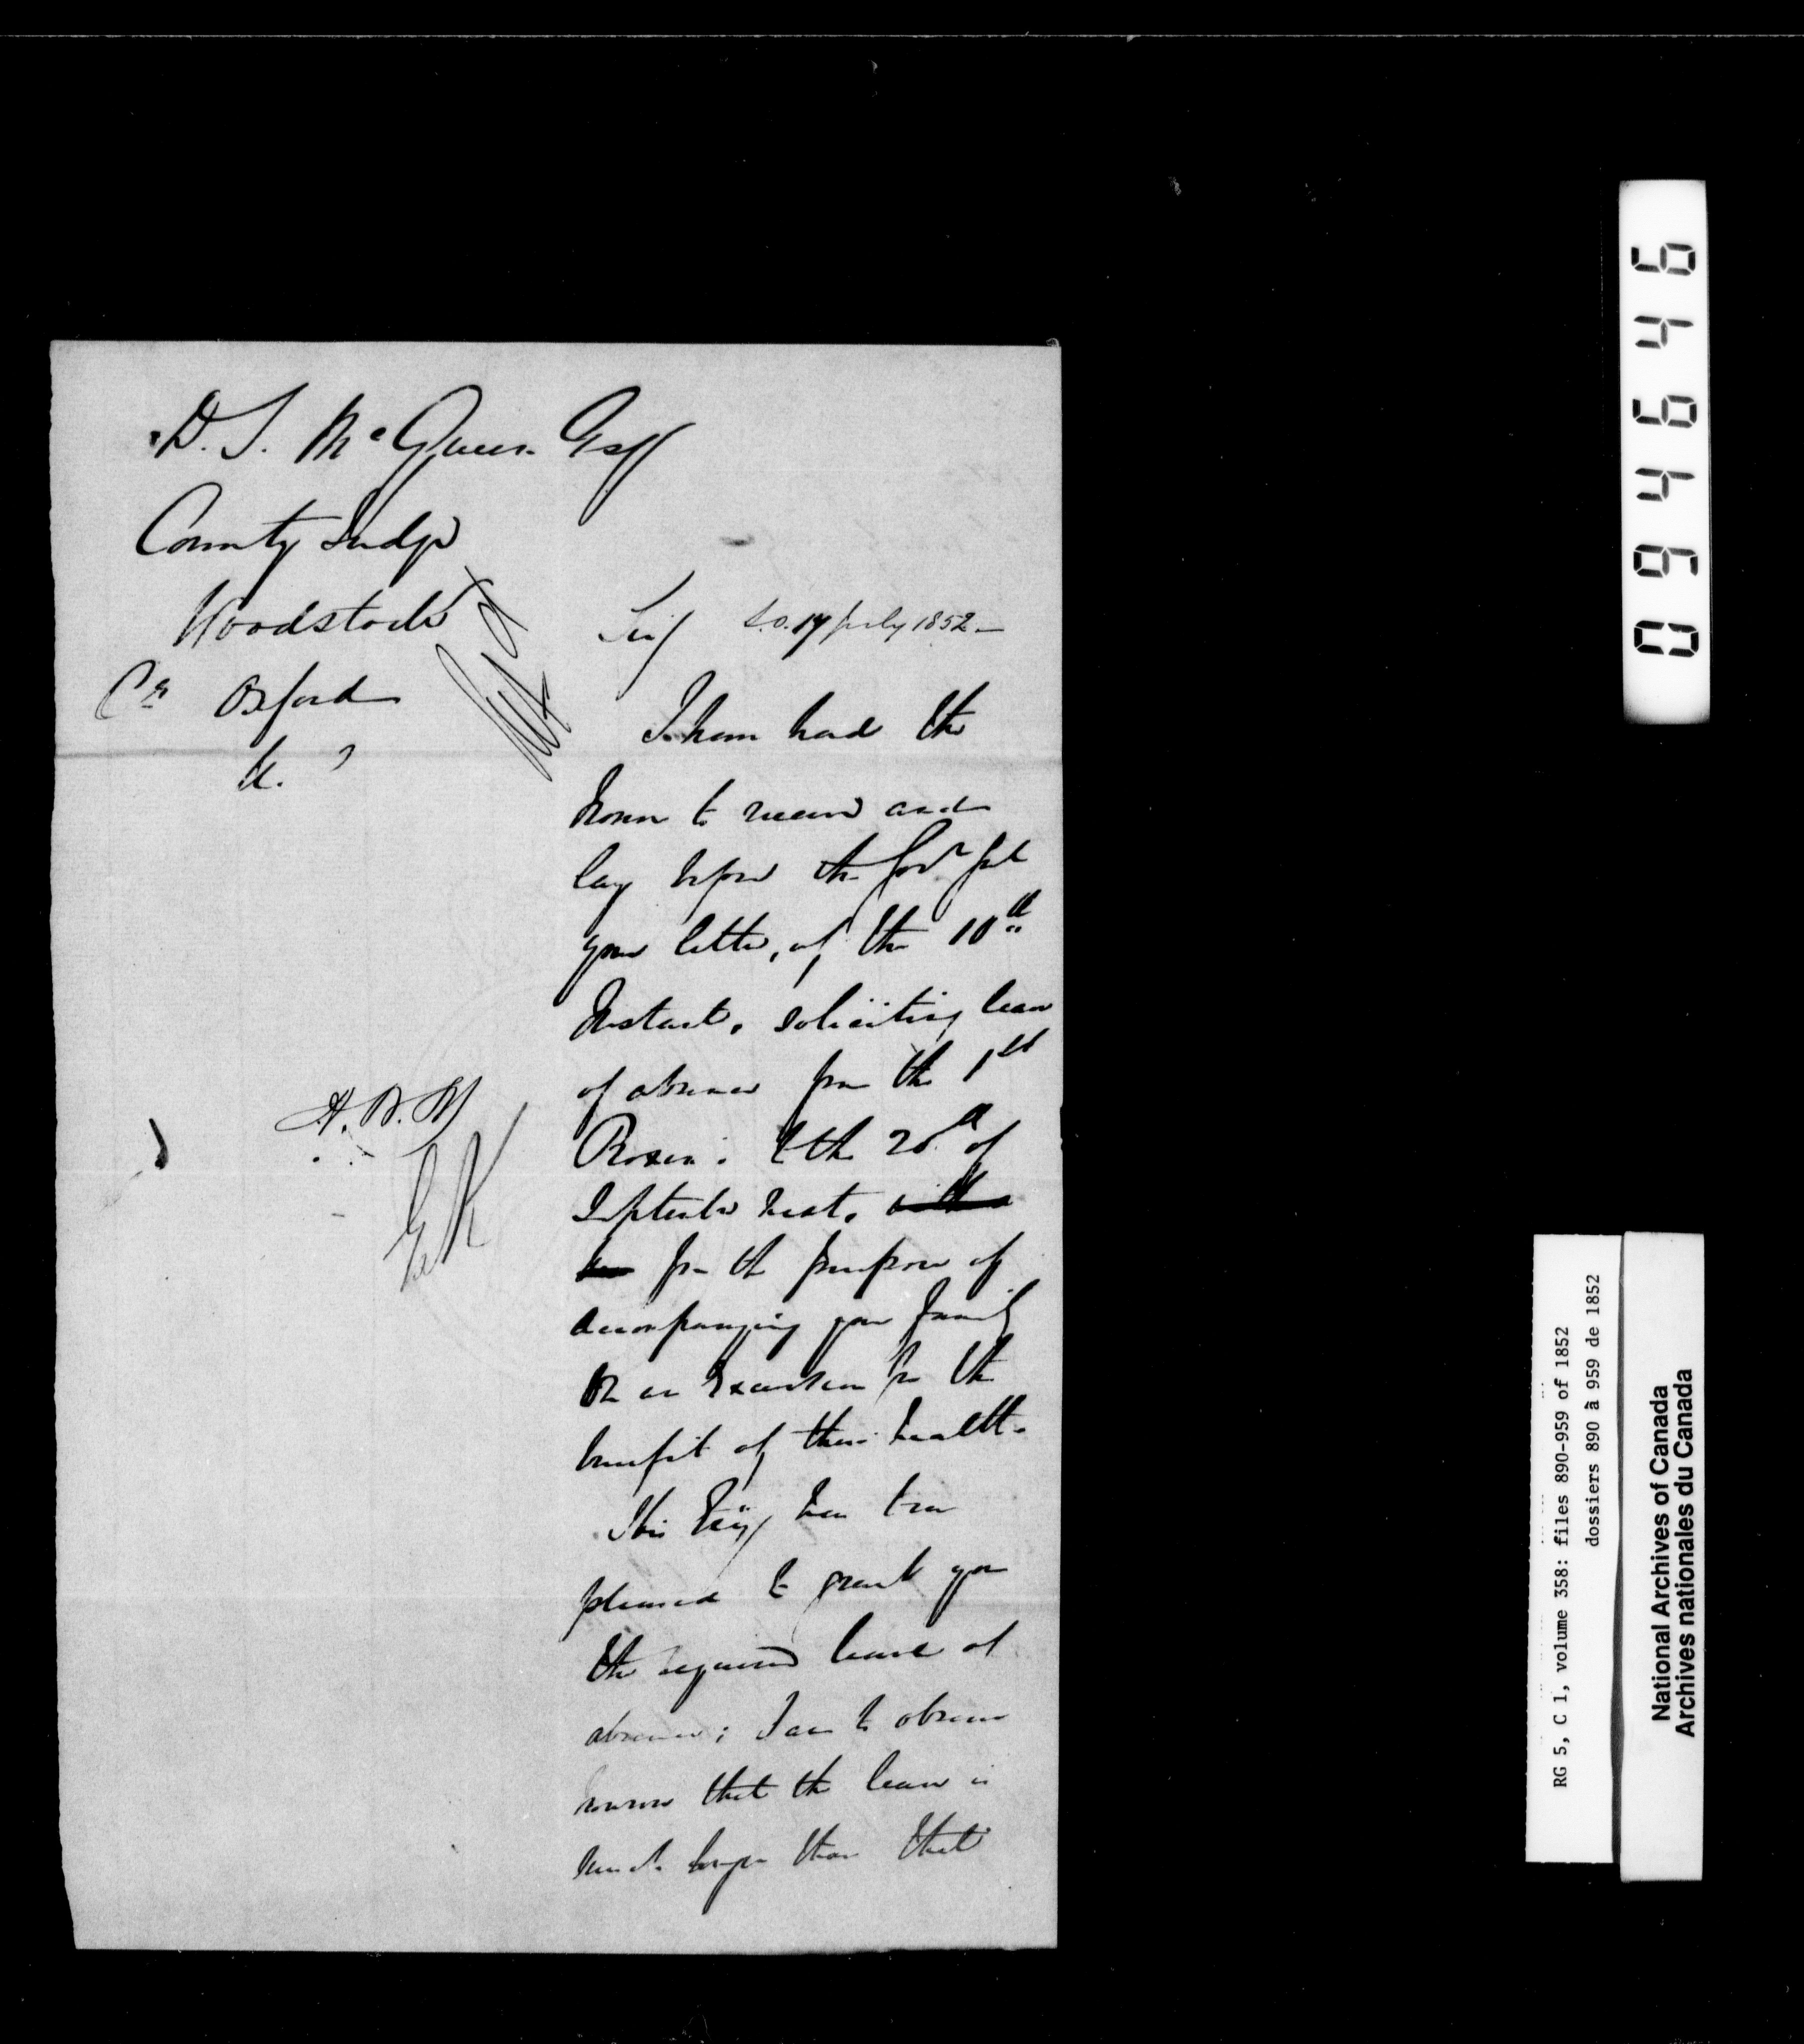 D. S. McQueen Esqr
County Judge
Woodstock
Co Oxford
&c.
Sir S.O. 17 July 1852
I have had the
honor to receive and
lay before the Govr Genl
your letter, of the 10th
Instant, soliciting leave
of absence from the 1st
Proximo to the 20th of
September next,
for the purpose of
accompanying your family
on an Excursion for the
benefit of their health.
His Exy has been
pleased to grant you
the required leave of
absence; I am to observe
however that the leave is
much longer than that
A.N.M
GK
094646
RG 5, C 1, volume 358: files 890-959 of 1852
dossiers 890 à 959 de 1852
National Archives of Canada
Archives nationales du Canada